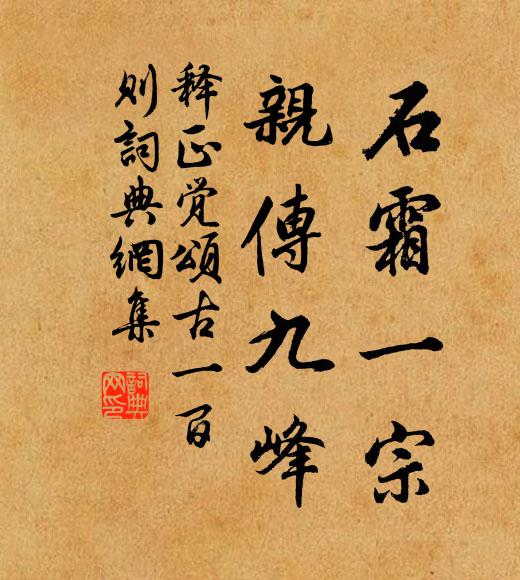 石霜一宗
親傳九峰
释正觉頌古一百
则詞典網集
詞典網印